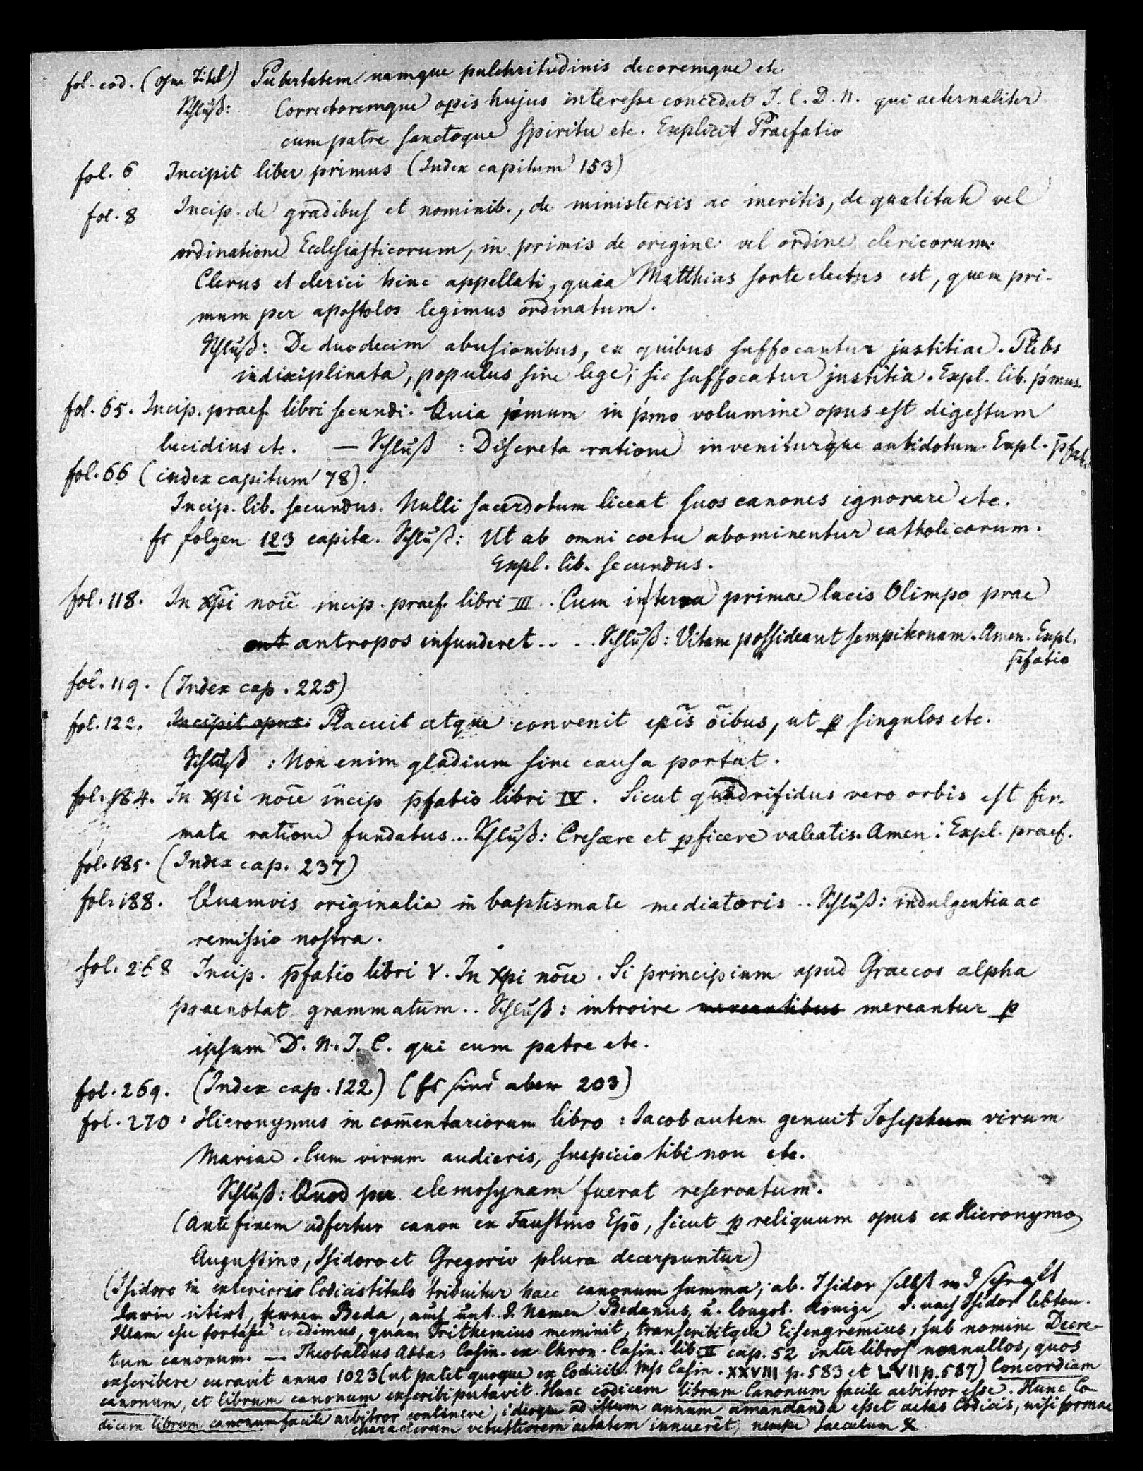 fol. cod. (ohne Titel) Pubertatem namque pulchritudinis decoremque etc
Schluß: Correctoremque opis hujus interesse concedat J. C. D. N. qui aeternaliter
cum patre sanctoque Spiritu etc. Explicit Praefatio
fol. 6 Incipit liber primus (Index capitum 153)
fol. 8 Incip. de gradibus et nominib., de ministeriis ac meritis, de qualitate vel
ordinatione Ecclesiasticorum, in primis de origine vel ordine clericorum.
Clerus et clerici hinc appellati, quia Matthias sorte electus est, quem pri-
mum per apostolos legimus ordinatum.
Schluß: De duodecim abusionibus, ex quibus suffocantur justitiae. Plebs
indisciplinata, populus sine lege; sic suffocatur justitia. Expl. lib. p̄mus.
fol. 65. Incip. praef. libri secundi. Quia p̄mum in p̄mo volumine opus est digestum
lucidius etc. — Schluß : Discreta ratione inveniturque antidotum. Expl. p̄fat.
fol. 66 (index capitum 78).
Incip. lib. secundus. Nulli sacerdotum liceat suos canones ignorare etc.
es folgen 123 capita. Schluß: Ut ab omni coetu abominentur catholicorum.
Expl. lib. secundus.
fol. 118. In xp̄i noi͞e incip. praef. libri III.. Cum interna primae lucis Olimpo prae
ant antropos infunderet.. .. Schluß: Vitam possideant sempiternam. Amen. Expl.
p̄fatio
fol. 119. (Index cap. 225)
fol. 122. Incipit opus. Placuit atque convenit ep̄is o͞ibus, ut p singulos etc.
Schluß : Non enim gladium sine causa portat.
fol. 184. In xp̄i noi͞e incip p̄fatio libri IV. Sicut quadrifidus vero orbis est fir-
mata ratione fundatus... Schluß: Crescere et pficere valeatis. Amen. Expl. praef.
fol. 185. (Index cap. 237)
fol. 188. Quamvis originalia in baptismate mediatoris .. Schluß: indulgentia ac
remissio nostra.
fol. 268 Incip. p̄fatio libri V. In xp̄i noi͞e. Si principium apud Graecos alpha
praenotat grammatum .. Schluß: introire mereantibus mereantur p
ipsum D. N. J. C. qui cum patre etc.
fol. 269. (Index cap. 122) (es sind aber 203)
fol. 270. Hieronymus in com̄entariorum libro : Iacob autem genuit Josephum virum
Mariae. Cum virum audieris, suspicio tibi non etc.
Schluß: Quod per elemosynam fuerat reservatum.
(Ante finem adfertur canon ex Faustino Ep̄o, sicut p reliquum opus ex Hieronymo,
Augustino, Isidoro et Gregorio plura decerpuntur)
(Isidoro in exterioris Codicis titulo tribuitur haec canonum summa, ab. Isidor selbst wird
darin citirt, ferner Beda, auch unt. d. Namen Bedanus, u. longob. Könige, d. nach Isidor lebten.
Illam esse fortasse credimus, quam Trithemius meminit, transcribitque Eisengremius, sub nomine Decre-
tum canonum. — Theobaldus Abbas Casin. ex Chron. Casin. lib. II cap. 52 inter libros nonnullos, quos
exscribere curavit anno 1023 (ut patet quoque ex Codicib. Mss Casin. XXVIII p. 583 et LVII p. 587) Concordiam
canonum, et librum canonum exscribi putavit. Hunc codicem librum Canonum facile arbitror esse. Hunc Co-
dicem librum canonum facile arbitror continere, ideoque ad istum annum amandanda esset aetas Codicis, nisi formae
characterum vetustiorem aetatem innuerēt, nempe saeculum X.